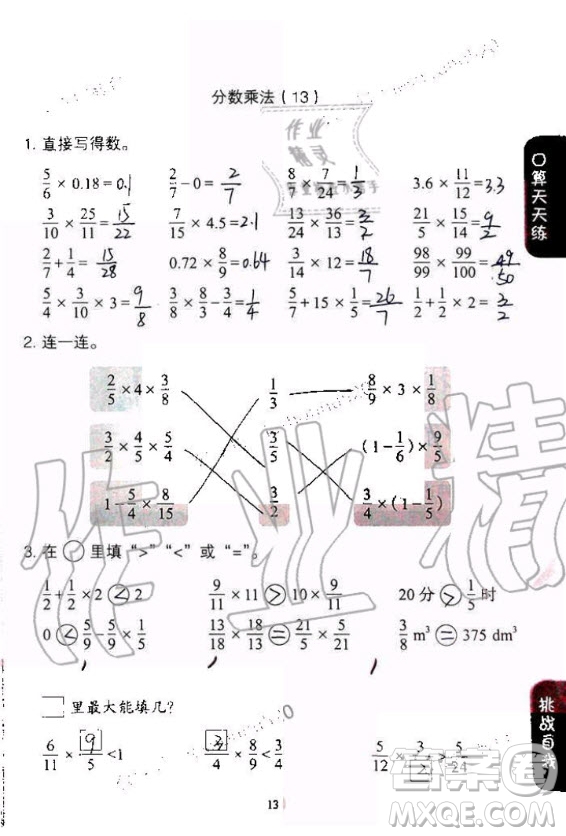 分数乘法(13)
1. 直接写得数。
5/6 × 0.18 = 0.1 2/7 - 0 = 2/7 8/7 × 7/24 = 1/3 3.6 × 11/12 = 3.3
3/10 × 25/11 = 15/22 7/15 × 4.5 = 2.1 13/24 × 36/13 = 3/2 21/5 × 15/14 = 9/2
2/7 + 1/4 = 15/28 0.72 × 8/9 = 0.64 3/14 × 12 = 18/7 98/99 × 99/100 = 49/50
5/4 × 3/10 × 3 = 9/8 3/8 × 8/3 - 3/4 = 1/4 5/7 + 15 × 1/5 = 26/7 1/2 + 1/2 × 2 = 3/2
2. 连一连。
2/5 × 4 × 3/8 1/3 8/9 × 3 × 1/8
3/2 × 4/5 × 5/4 3/5 (1 - 1/6) × 9/5
1 - 5/4 × 8/15 3/2 3/4 × (1 - 1/5)
3. 在○里填“>”“<”或“=”。
1/2 + 1/2 × 2 < 2 9/11 × 11 > 10 × 9/11 20分 > 1/5时
0 < 5/9 - 5/9 × 1/5 13/18 × 18/13 = 21/5 × 5/21 3/8 m³ = 375 dm³
□里最大能填几?
6/11 × 9/5 < 1 3/4 × 8/9 < 3/4 5/12 × 3/2 > 5/24
13
算天天练
挑战自我
作业精灵
作业精灵
答案圈
MXQE.COM